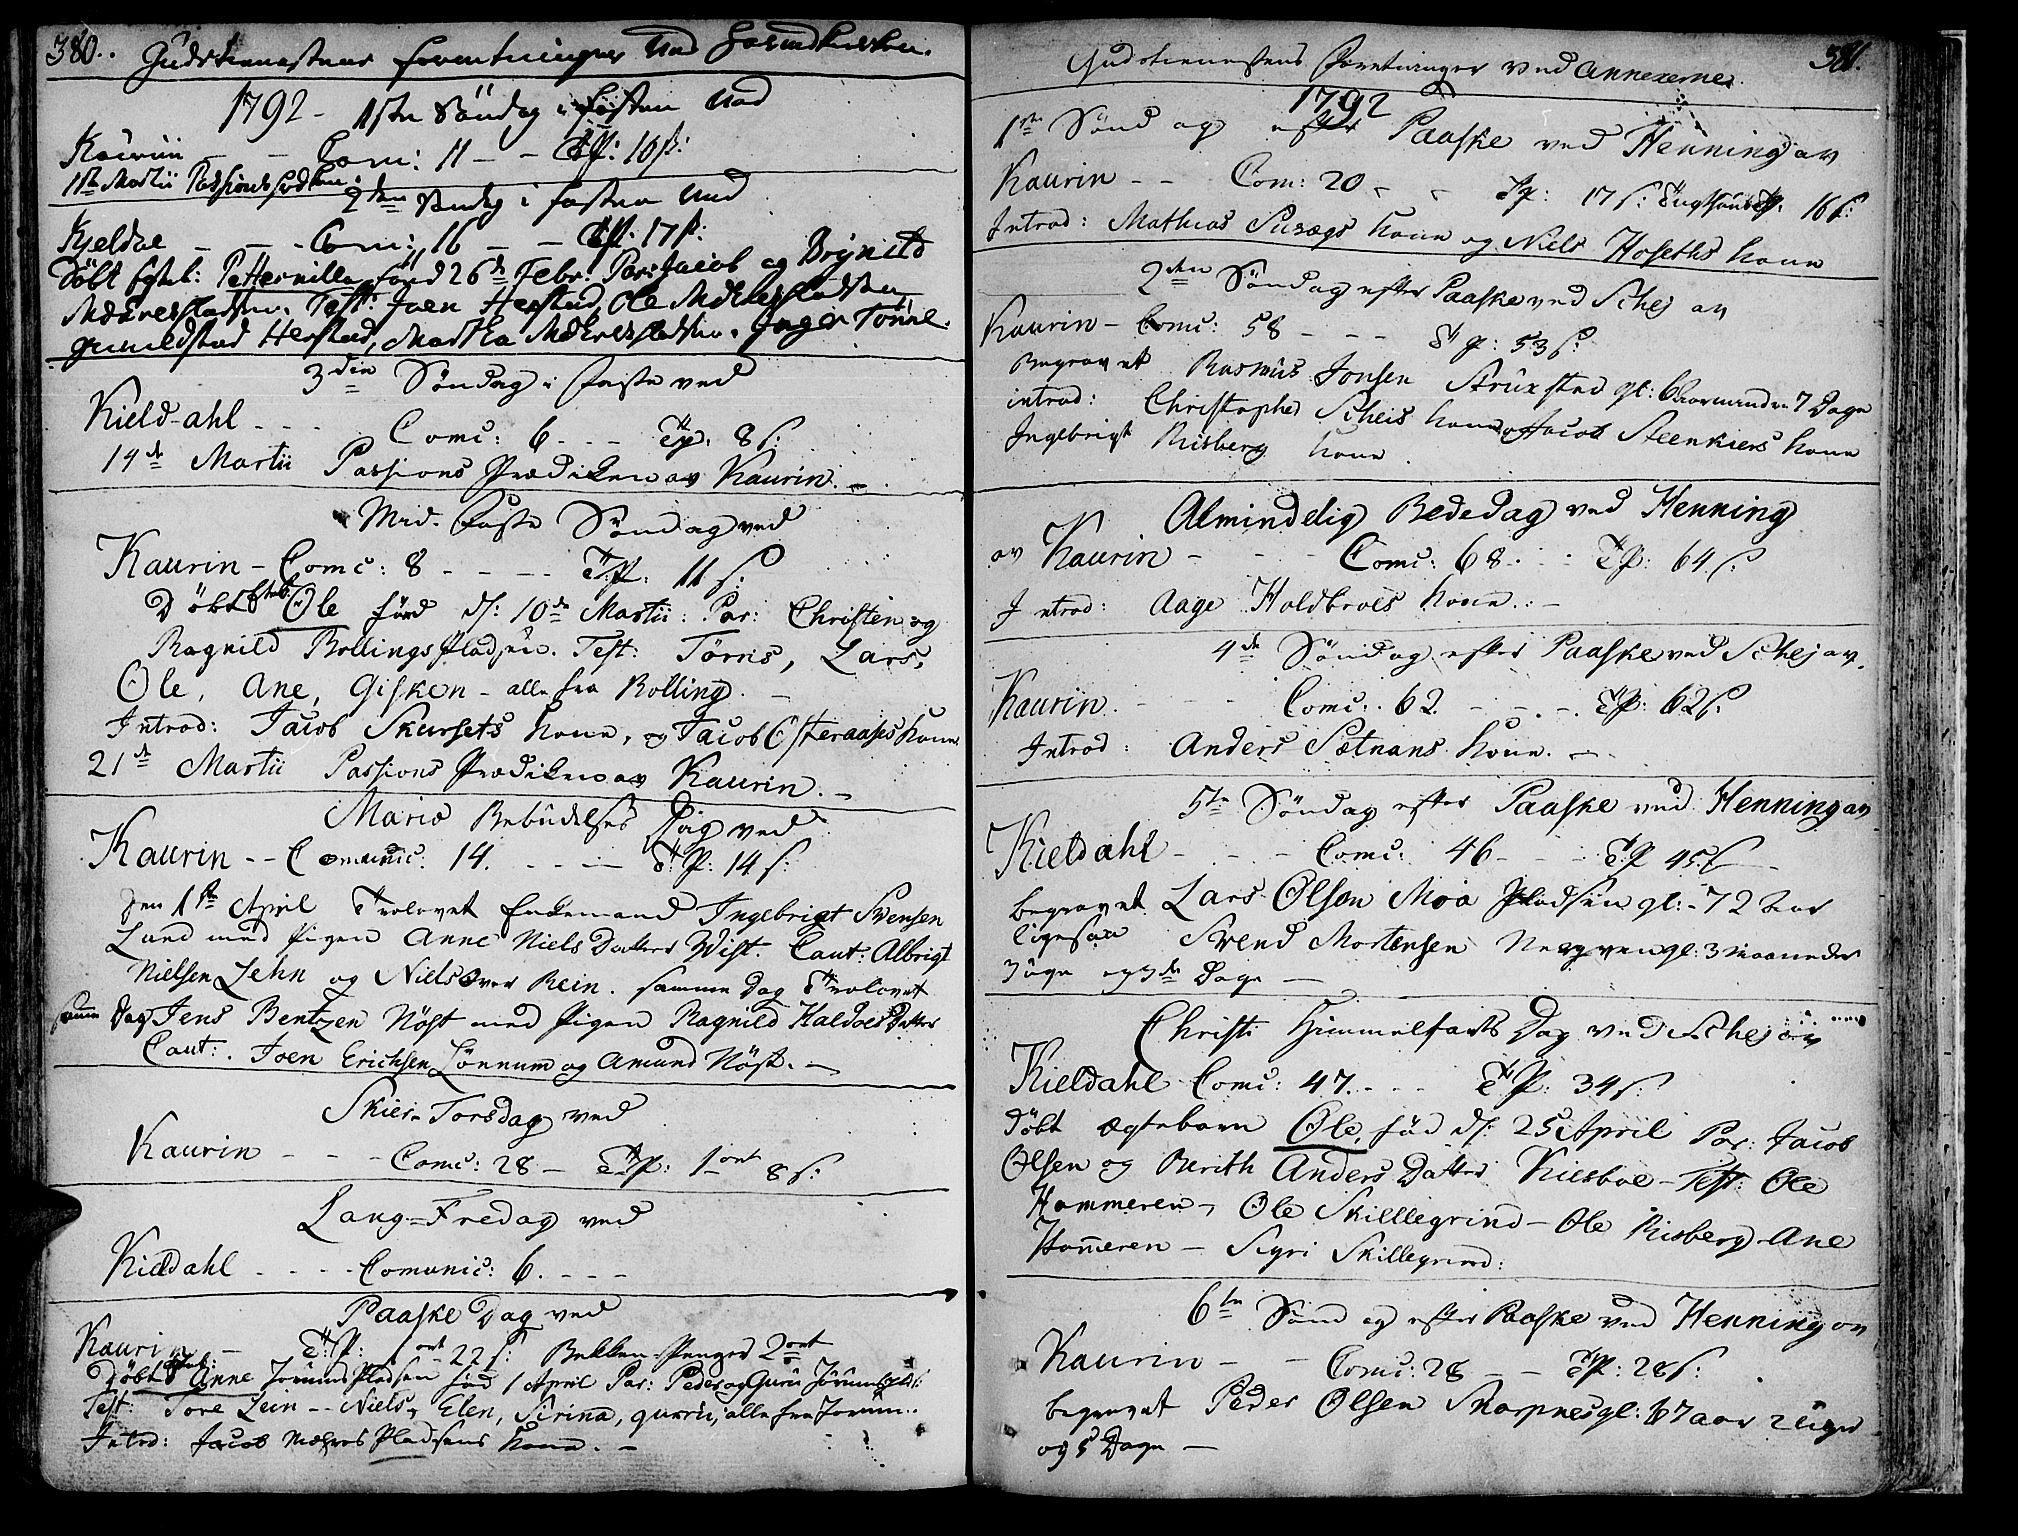 380. Gudstienestens forretninger ved Hovedkirken.
1792 - 1ste Söndag i fasten ved
Kaurin - - Com: 11 - - Tfl: 10 ß:
1ste Martii Passions Prædiken.
2den Söndag i fasten ved
Kjeldal - - - Com: 16 - - Tfl: 17 ß:
Döbt Egteb: Petternilla, föd 26de Febr: Par: Jacob og Brynild
Mæhrespladsen. Test: Joen Hegstad, Ole Mæhrespladsen
Hegstad, Martha Mæhrespladsen. Inger Tönne-
3die Söndag i faste ved
Kield-ahl - - - Comc: 6 - - - Tfl: 8 ß:
14de Martii Passions Prædiken av Kaurin. -
Mid-faste Söndag ved
Kaurin - Comc: 8 - - - - Tfl: 11 ß:
Döbt Ole föd d: 10de Martii: Par: Christen og
Ragnild Bollingspladsen. Test: Törris, Lars,
Ole, Ane, Gisken - alle fra Bolling. -
Introd: Jacob Skursets kone, og Jacob Österaases kone
21de Martii Passions Prædiken av Kaurin. -
Mariæ Bebudelses Dag ved
Kaurin - - Comunic: 14. - - - - Tfl: 14 ß:
Den 1ste April Trolovet Enkemand Ingebrigt Svensen
Lund med Pigen Anne Niels Datter Wist. Caut: Albrigt
Nielsen Lehn og Niels Over Rein. samme Dag Trolovet
samme Dag Jens Bentzen Nöst med Pigen Ragnild Haldoes Datter
Caut: Joen Erichsen Lönnum og Amund Nöst. -
Skier-Torsdag ved
Kaurin - - - Comc: 28 - Tfl: 1 ort 8 ß:
Lang-Fredag ved
Kieldahl - - - - Comunic: 6. - - -
Paaske Dag ved
Kaurin - Tfl: 1 ort 22 ß: Bekken-Penger 2 ort
Döbt Anne Jörums Pladsen föd 1 April Par: Peder og Guru Jörums
Test: Tore Lein - - Niels, Elen, Sirina, guru, alle fra Jörum.
Introd: Jacob Mæhres Pladsens kone. -
Gudstienestens Foretninger ved Annexerne. 381.
1792
1ste Söndag efter Paaske ved Henning av
Kaurin - - Com: 20 - - Tfl: 17 ß: 16 ß:
Introd: Mathias kone og Niels Hoseths kone
2den Söndag efter Paaske ved Schej av
Kaurin - Comc: 58 - - - Tfl: 53 ß:
Begravet Rasmus Jonsen gl: 7 Dage
introd: Christopher Scheis kone og Jacob Steenkiers kone
Ingebrigt Risberg kone.
Almindelig Bededag ved Henning
av Kaurin - - - Comc: 68 - - Tfl: 64 ß:
Introd: Aage Holdbroes kone. -
4de Söndag efter Paaske ved Schej av
Kaurin. - - - Comc: 62 - - - - Tfl: 62 ß:
Introd: Anders Sætnans kone. -
5te Söndag efter Paaske ved Henning av
Kieldahl - - - Comc: 46 - - - Tfl: 45 ß -
begravet Lars Olson Moa Pladsen gl: 72 aar
ligesaa Svend Mortensen gl: 3 maaneder
3 uge og 3de Dage -
Christi Himmelfarts Dag ved Schej av
Kieldahl Comc: 47. - - - Tfl: 34 ß:
Döbt ægtebarn Ole, föd d: 25 April Par: Jacob
Olsen og Berith Anders Datter Kiesboe - Test: Ole
Hammeren, Ole Skilllegrind - Ole Risberg Ane
Hameren - Sigri Skillegrind:
6te Söndag efter Paaske ved Henning av
Kaurin - - Comc: 28 - - Tfl: 28 ß:
begravet Peder Olsen gl: 67 aar 2 Uger
og 5 Dage -